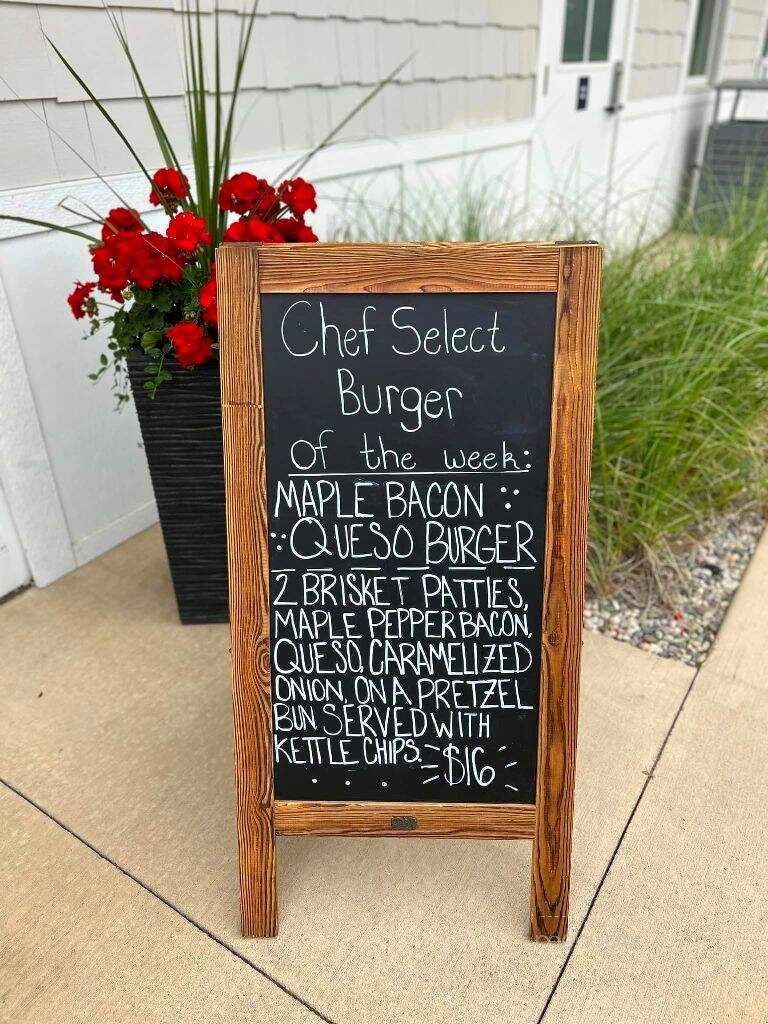 Chef Select
Burger
Of the week:
MAPLE BACON
QUESO BURGER
2 BRISKET PATTIES,
MAPLE PEPPER BACON,
QUESO, CARAMELIZED
ONION, ON A PRETZEL
BUN SERVED WITH
KETTLE CHIPS. $16